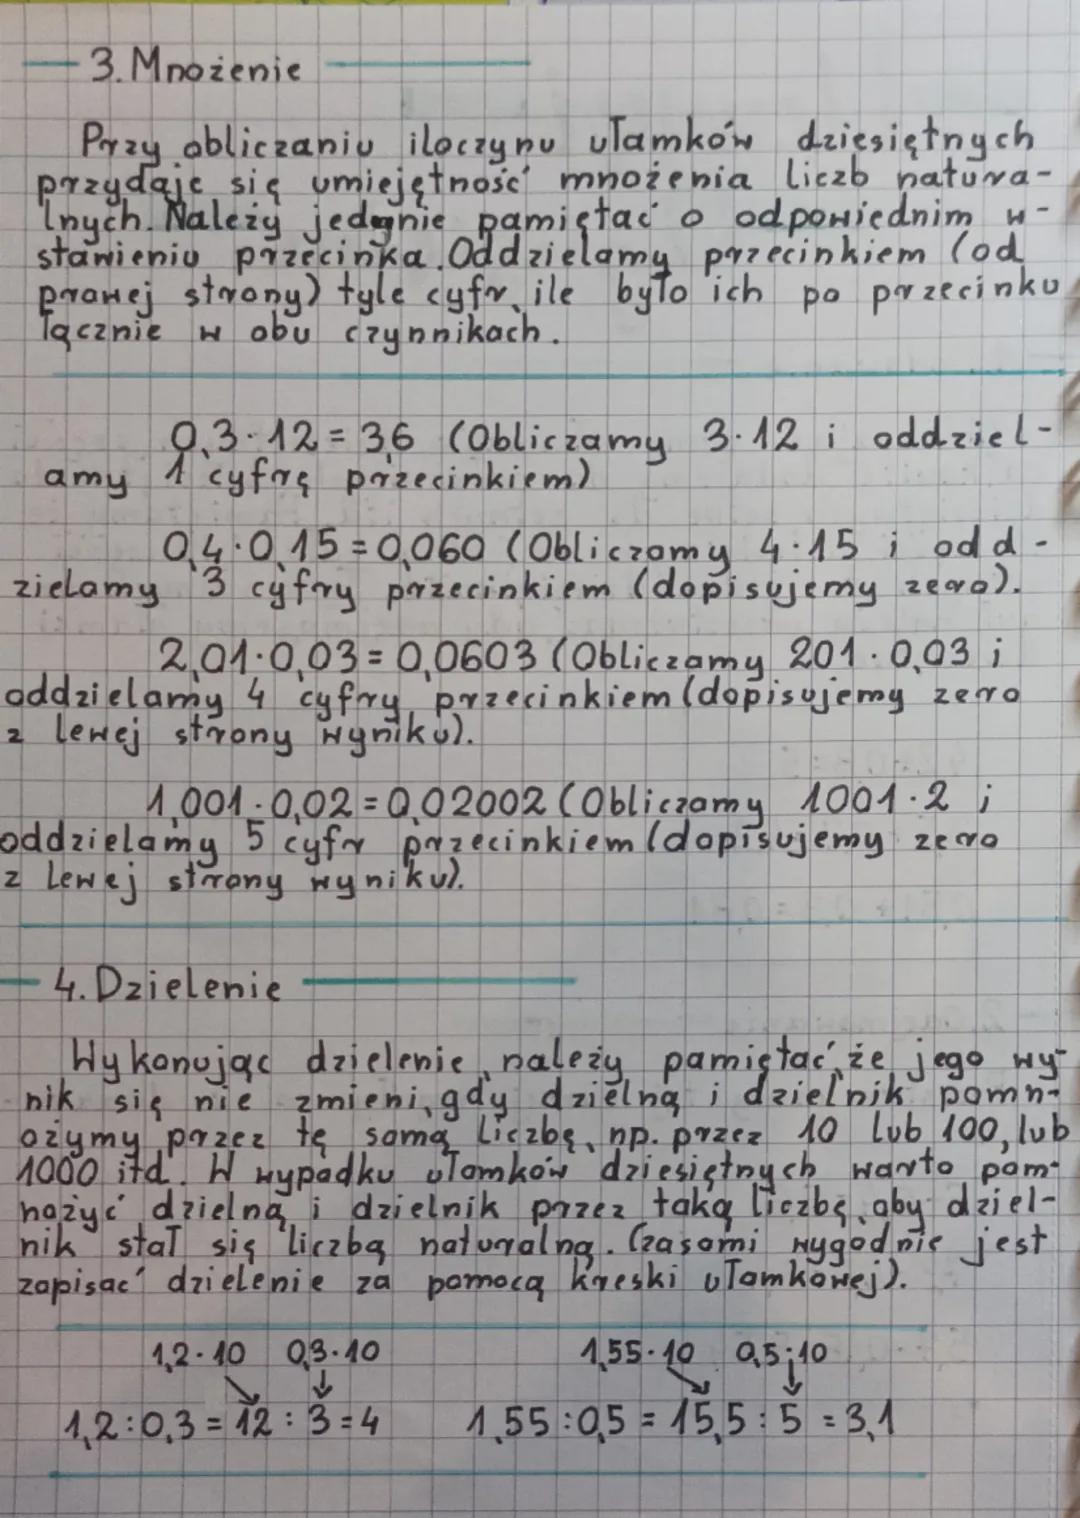 3. Mnożenie
Przy obliczaniu iloczynu ułamków dziesiętnych
przydaje się umiejętność mnożenia liczb natura-
lnych. Należy jedynie pamiętać o odpowiednim w-
stawieniu przecinka. Oddzielamy przecinkiem (od
prawej strony) tyle cyfr, ile było ich po przecinku
łącznie w obu czynnikach.
0,3·12=3,6 (Obliczamy 3·12 i oddziel-
amy 1 cyfrę przecinkiem)
0,4·0,15=0,060 (Obliczamy 4·15 i odd-
zielamy 3 cyfry przecinkiem (dopisujemy zero).
2,01·0,03=0,0603 (Obliczamy 201·0,03 i
oddzielamy 4 cyfry przecinkiem (dopisujemy zero
z lewej strony wyniku).
1,001·0,02=0,02002 (Obliczamy 1001·2 i
oddzielamy 5 cyfr przecinkiem (dopisujemy zero
z lewej strony wyniku).
4. Dzielenie
Wykonując dzielenie, należy pamiętać, że jego wy-
nik się nie zmieni, gdy dzielną i dzielnik pomn-
ożymy przez tę samą liczbę, np. przez 10 lub 100, lub
1000 itd. W wypadku ułamków dziesiętnych warto pom-
nożyć dzielną i dzielnik przez taką liczbę, aby dziel-
nik stał się liczbą naturalną. (Czasami wygodnie jest
zapisać dzielenie za pomocą kreski ułamkowej).
1,2·10 0,3·10 1,55·10 0,5·10
1,2:0,3=12:3=4 1,55:0,5=15,5:5=3,1